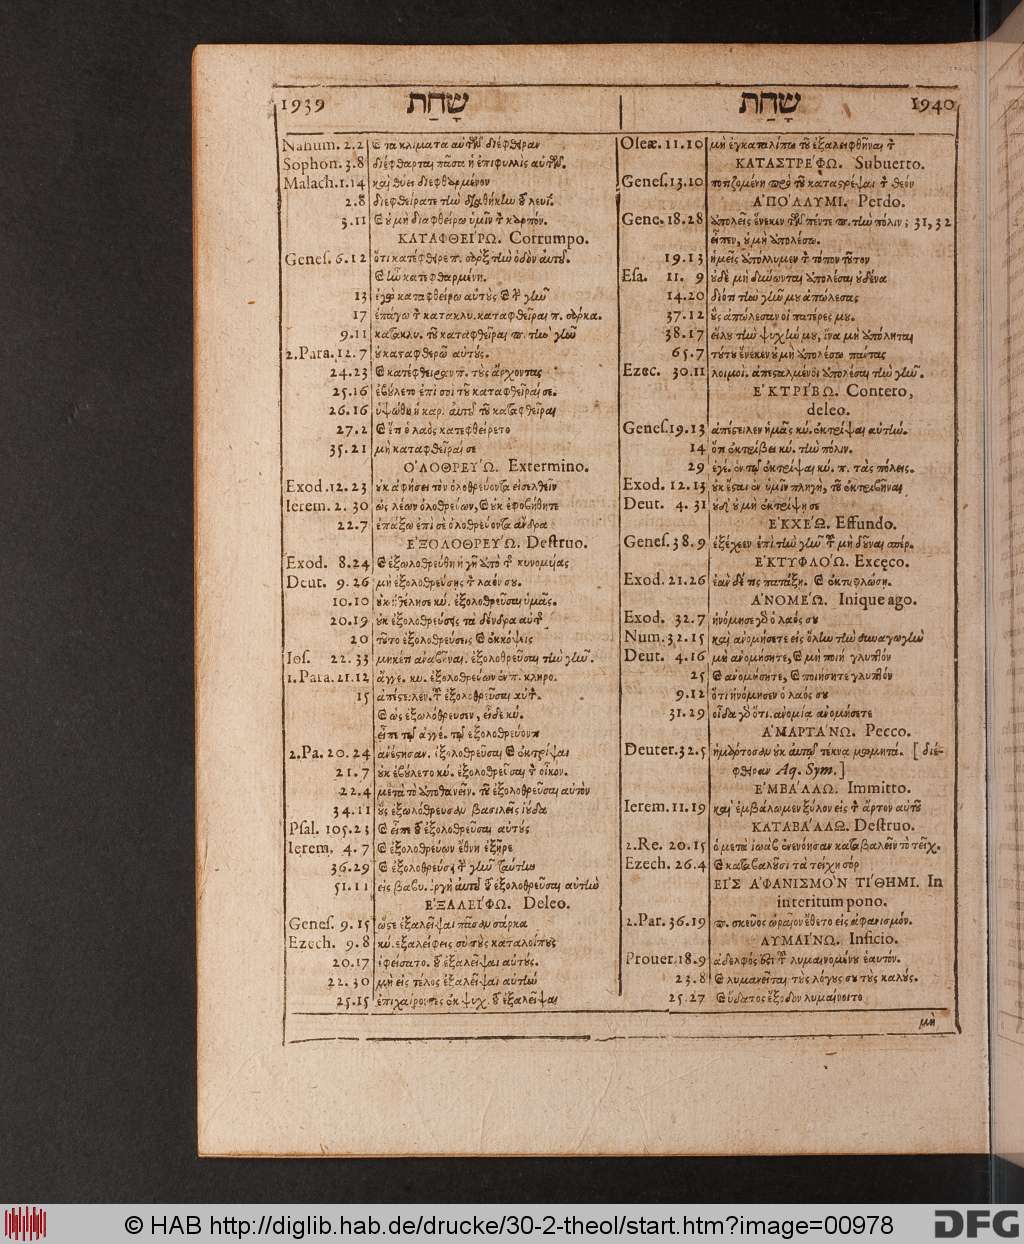 1939 שָׁחַת
Nahum. 2.2 τὰ κλίματα αὐτῶν διέφθειραν
Sophon. 3.8 διέφθαρται πᾶσα ἡ ἐπιφυλλὶς αὐτῶν.
Malach. 1.14 καὶ θύει διεφθαρμένον
2.8 διεφθείρατε τὴν διαθήκην λευΐ.
3.11 οὐ μὴ διαφθείρω ὑμῖν τ̀ καρπόν.
ΚΑΤΑΦΘΕΙΡΩ. Corrumpo.
Genes. 6.12 ὅτι κατέφθειρε π. σὰρξ τὴν ὁδὸν αὐτοῦ.
ἦν κατεφθαρμένη.
13 καταφθείρω αὐτοὺς γῆν
17 ἐπάγω τ̀ κατακλυ. καταφθεῖραι π. σάρκα.
9.11 κατακλυ. τοῦ καταφθεῖραι π. τὴν γῆν
2. Para. 12.7 οὐ καταφθερῶ αὐτούς.
24.23 κατέφθειραν π. τοὺς ἄρχοντας
25.16 ἐβούλετο ἐπὶ σοι τοῦ καταφθεῖραί σε.
26.16 ὑψώθη ἡ καρ. αὐτοῦ τοῦ καταφθεῖραι
27.2 ἔτι ὁ λαὸς κατεφθείρετο
35.21 μὴ καταφθείραί σε
ὈΛΟΘΡΕΥΏ. Extermino.
Exod. 12.23 οὐκ ἀφήσει τὸν ὀλοθρεύοντα εἰσελθεῖν
Ierem. 2.30 ὡς λέων ὀλοθρεύων, οὐκ ἐφοβήθητε
22.7 ἐπάξω ἐπὶ σὲ ὀλοθρεύοντα ἄνδρα
ἘΞΟΛΟΘΡΕΥΏ. Destruo.
Exod. 8.24 ἐξωλοθρεύθη ἡ γῆ ἀπὸ τ̀ κυνομυίας
Deut. 9.26 μὴ ἐξολοθρεύσῃς τ̀ λαόν σου.
10.10 οὐκ ἠθέλησε κύ. ἐξολοθρεῦσαι ὑμᾶς.
20.19 οὐκ ἐξολοθρεύσῃς τὰ δένδρα αὐτ
20 τοῦτο ἐξολοθρεύσεις ἐκκόψεις
Ios. 22.33 μηκέτι ἀναβῆναι. ἐξολοθρεῦσαι τὴν γῆν.
1. Para. 21.12 ἄγγε. κυ. ἐξολοθρεύων ἐν π. κληρο.
15 ἀπέστειλεν. τ̀ ἐξολοθρεῦσαι αὐτ.
ὡς ἐξωλόθρευσεν, εἶδε κύ.
εἶπε τῷ ἀγγέ. τῷ ἐξολοθρεύοντι
2. Pa. 20.24 ἀνέστησαν. ἐξολοθρεῦσαι ἐκτρίψαι
21.7 οὐκ ἐβούλετο κύ. ἐξολοθρεῦσαι τ̀ οἶκον.
22.4 μετὰ τὸ ἀποθανεῖν. τοῦ ἐξολοθρεῦσαι αὐτὸν
34.11 οὓς ἐξωλόθρευσαν βασιλεῖς ἰούδα
Psal. 105.23 εἶπε τοῦ ἐξολοθρεῦσαι αὐτούς
Ierem. 4.7 ἐξολοθρεύων ἔθνη ἐξῆρε
36.29 ἐξολοθρεύσει τ̀ γῆν ταύτην
51.11 εἰς βαβυ. ὀργὴ αὐτοῦ τοῦ ἐξολοθρεῦσαι αὐτὴν
ἘΞΑΛΕΙΦΩ. Deleo.
Genes. 9.15 ὥστε ἐξαλεῖψαι πᾶσαν σάρκα
Ezech. 9.8 κύ. ἐξαλείφεις σὺ τοὺς καταλοίπους
20.17 ἐφείσατο. τοῦ ἐξαλεῖψαι αὐτούς.
22.30 μὴ εἰς τέλος ἐξαλεῖψαι αὐτήν
25.15 ἐπιχαίροντες ἐκ ψυχ. τοῦ ἐξαλεῖψαι
שָׁחַת 1940
Oseæ. 11.10 μὴ ἐγκαταλίπω τοῦ ἐξαλειφθῆναι τ̀
ΚΑΤΑΣΤΡΕΦΩ. Subuerto.
Genes. 13.10 ποτιζομένη πρὸ τοῦ καταστρέψαι τ̀ θεόν
ἈΠΌΛΛΥΜΙ. Perdo.
Gene. 18.28 ἀπολεῖς ἕνεκεν τῶν πέντε π. τὴν πόλιν; 31, 32
εἶπεν, οὐ μὴ ἀπολέσω.
19.13 ἡμεῖς ἀπόλλυμεν τ̀ τόπον τοῦτον
Esa. 11. 9 οὐδὲ μὴ δύνωνται ἀπολέσαι οὐδένα
14.20 διότι τὴν γῆν μου ἀπώλεσας
37.12 οὓς ἀπώλεσαν οἱ πατέρες μου.
38.17 εἵλου τὴν ψυχήν μου, ἵνα μὴ ἀπόληται
65.7 τούτου ἕνεκεν οὐ μὴ ἀπολέσω πάντας
Ezec. 30.11 λοιμοὶ. ἀπεσταλμένοι ἀπολέσαι τὴν γῆν.
ἘΚΤΡΊΒΩ. Contero,
deleo.
Genes. 19.13 ἀπέστειλεν ἡμᾶς κύ. ἐκτρίψαι αὐτήν.
14 ὅτι ἐκτρίβει κύ. τὴν πόλιν.
29 ἐγέ. ἐν τῷ ἐκτρίψαι κύ. π. τὰς πόλεις.
Exod. 12.13 οὐκ ἔσται ἐν ὑμῖν πληγὴ, τοῦ ἐκτριβῆναι
Deut. 4. 31 οὐδὲ μὴ ἐκτρίψῃ σε
ἘΚΧΕΏ. Effundo.
Genes. 38.9 ἐξέχεεν ἐπὶ τὴν γῆν τ̀ μὴ δοῦναι σπέρ.
ἘΚΤΥΦΛΌΩ. Excęco.
Exod. 21.26 ἐὰν δέ τις πατάξῃ. ἐκτυφλώσῃ.
ἈΝΟΜΕΏ. Inique ago.
Exod. 32.7 ἠνόμησε γὰρ ὁ λαός σου
Num. 32.15 καὶ ἀνομήσετε εἰς ὅλην τὴν συναγωγὴν
Deut. 4.16 μὴ ἀνομήσητε, μὴ ποιή γλυπτόν
25 ἀνομήσητε, ποιήσητε γλυπτόν
9.12 ὅτι ἠνόμησεν ὁ λαός σου
31.29 οἶδα γὰρ ὅτι. ἀνομίᾳ ἀνομήσετε
ἉΜΑΡΤΆΝΩ. Pecco.
Deuter. 32.5 ἡμάρτοσαν οὐκ αὐτῷ τέκνα μωμητά. [διέ-
φθειραν Aq. Sym.]
ἘΜΒΆΛΛΩ. Immitto.
Ierem. 11.19 καὶ ἐμβάλωμεν ξύλον εἰς τ̀ ἄρτον αὐτοῦ
ΚΑΤΑΒΆΛΛΩ. Destruo.
2. Re. 20.15 ὁ μετὰ ἰωὰβ ἐνενόησαν καταβαλεῖν τὸ τεῖχ.
Ezech. 26.4 καταβαλοῦσι τὰ τείχη σόρ
ΕἸΣ ἈΦΑΝΙΣΜΌΝ ΤΊΘΗΜΙ. In
interitum pono.
2. Par. 36.19 π. σκεῦος ὡραῖον ἔθετο εἰς ἀφανισμόν.
ΛΥΜΑΊΝΩ. Inficio.
Prouer. 18.9 ἀδελφός ἐστι τ̀ λυμαινομένου ἑαυτόν.
23.8 λυμανεῖται τοὺς λόγους σου τοὺς καλούς.
25.27 ὕδατος ἔξοδον λυμαίνοιτο
μὴ
© HAB http://diglib.hab.de/drucke/30-2-theol/start.htm?image=00978 DFG